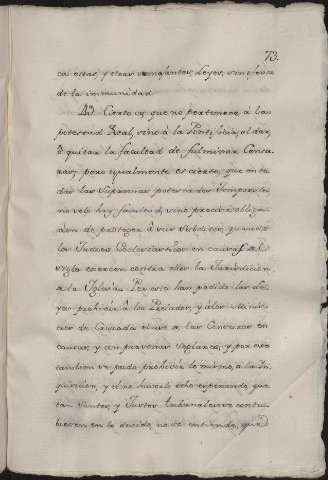 73.
ca estas, y otras semejantes Leyes, sin ofensa
de la immunidad.
49 Cierto es que no pertenece á las
potestad Real, sino á la Pontificia, el dar,
ó quitar la facultad de fulminar Censu
ras; pero igualmente es cierto, que en to
das las Supremas potestades Temporales
no solo hay facultad, sino precisa obliga
cion de proteger á sus Subditos quando
los Jueces Eclesiasticos en causas
siglo exercen contra ellos la Jurisdicion
de la Iglesia. Por esso han podido las Le
yes prohivir á los Prelados, y á los Minis
tros de Cruzada el uso de las Censuras en
causas, y en personas Seglares; y por esso
tambien se pudo prohivir lo mismo, a la In
quisicion, y el no haverlo echo esperando, que
tan Santos, y Justos tribunales se contu
biesen en lo devido, no se entiende, que